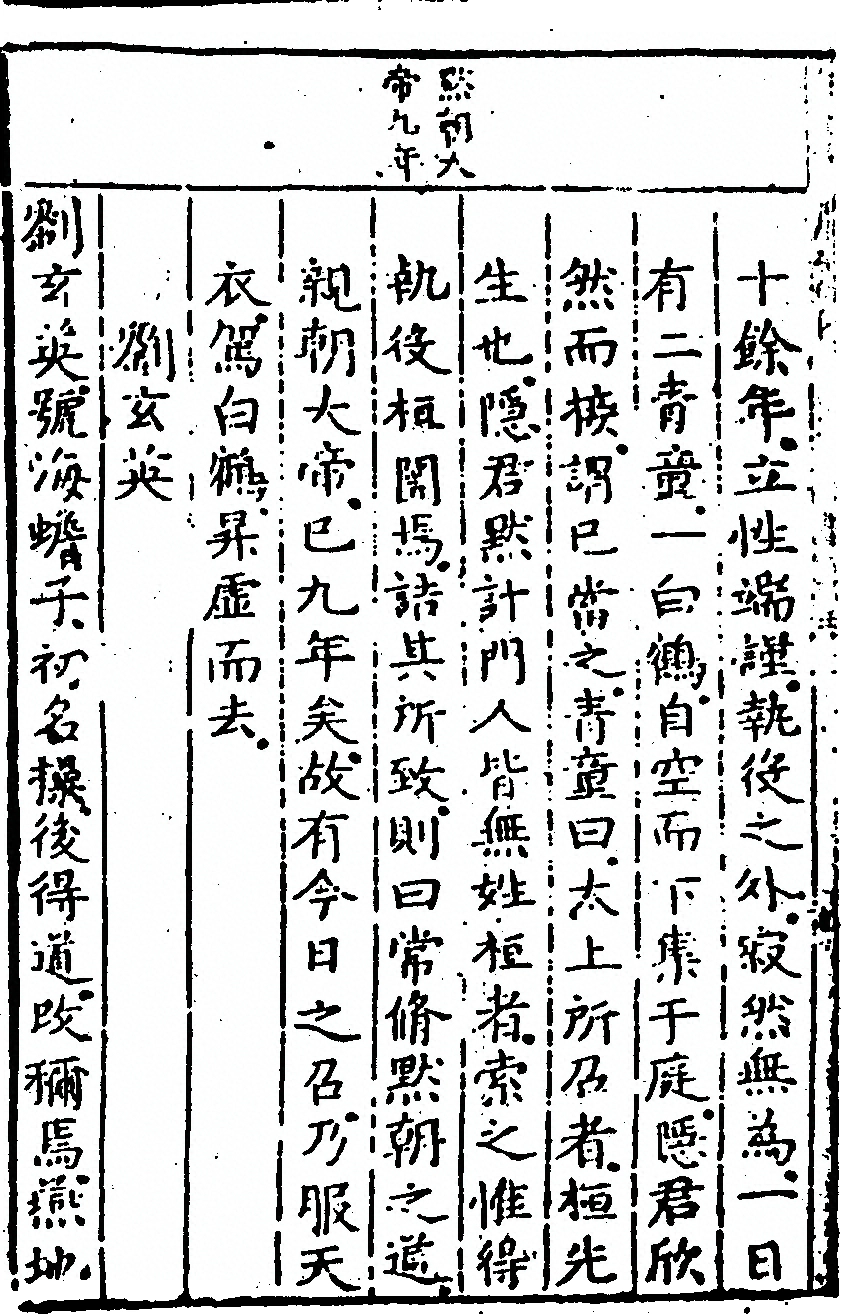 默朝大
帝九年
十餘年立性端謹執役之外寂然無為一日
有二青童一白鶴自空而下集于庭隱君欣
然而接謂已當之青童曰太上所召者桓先
生也隱君默計門人皆無姓桓者索之惟得
執役桓闓焉詰其所致則曰常脩默朝之道
親朝大帝已九年矣故有今日之召乃服天
衣駕白鶴昇虛而去
劉玄英
劉玄英號海蟾子初名操後得道改稱焉燕地